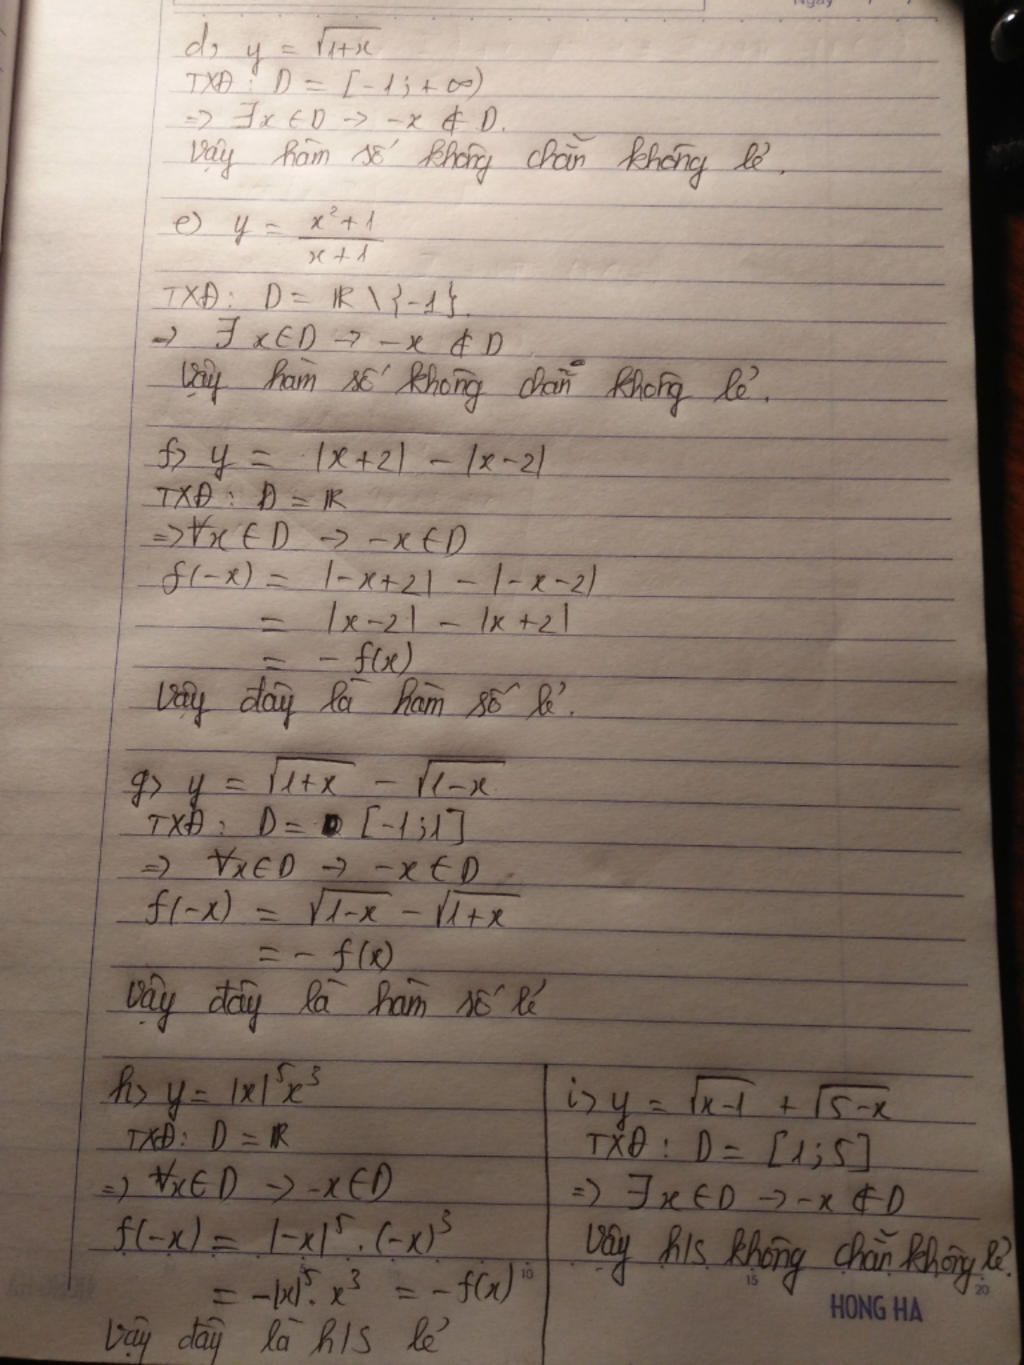 d, y = √(1+x)
TXĐ : D = [-1; +∞)
=> ∃x ∈ D → -x ∉ D.
Vậy hàm số không chẵn không lẻ.
e) y = (x²+1)/(x+1)
TXĐ : D = ℝ \ {-1}.
=> ∃x ∈ D → -x ∉ D
Vậy hàm số không chẵn không lẻ.
f> y = |x+2| - |x-2|
TXĐ : D = ℝ
=> ∀x ∈ D → -x ∈ D
f(-x) = |-x+2| - |-x-2|
= |x-2| - |x+2|
= - f(x)
Vậy đây là hàm số lẻ.
g> y = √(1+x) - √(1-x)
TXĐ : D = [-1;1]
=> ∀x ∈ D → -x ∈ D
f(-x) = √(1-x) - √(1+x)
= - f(x)
Vậy đây là hàm số lẻ
h> y = |x|⁵x³
TXĐ : D = ℝ
=> ∀x ∈ D → -x ∈ D
f(-x) = |-x|⁵ . (-x)³
= -|x|⁵ . x³ = - f(x)
Vậy đây là h/s lẻ
i> y = √(x-1) + √(5-x)
TXĐ : D = [1;5]
=> ∃x ∈ D → -x ∉ D
Vậy h/s không chẵn không lẻ.
10
15
20
HONG HA